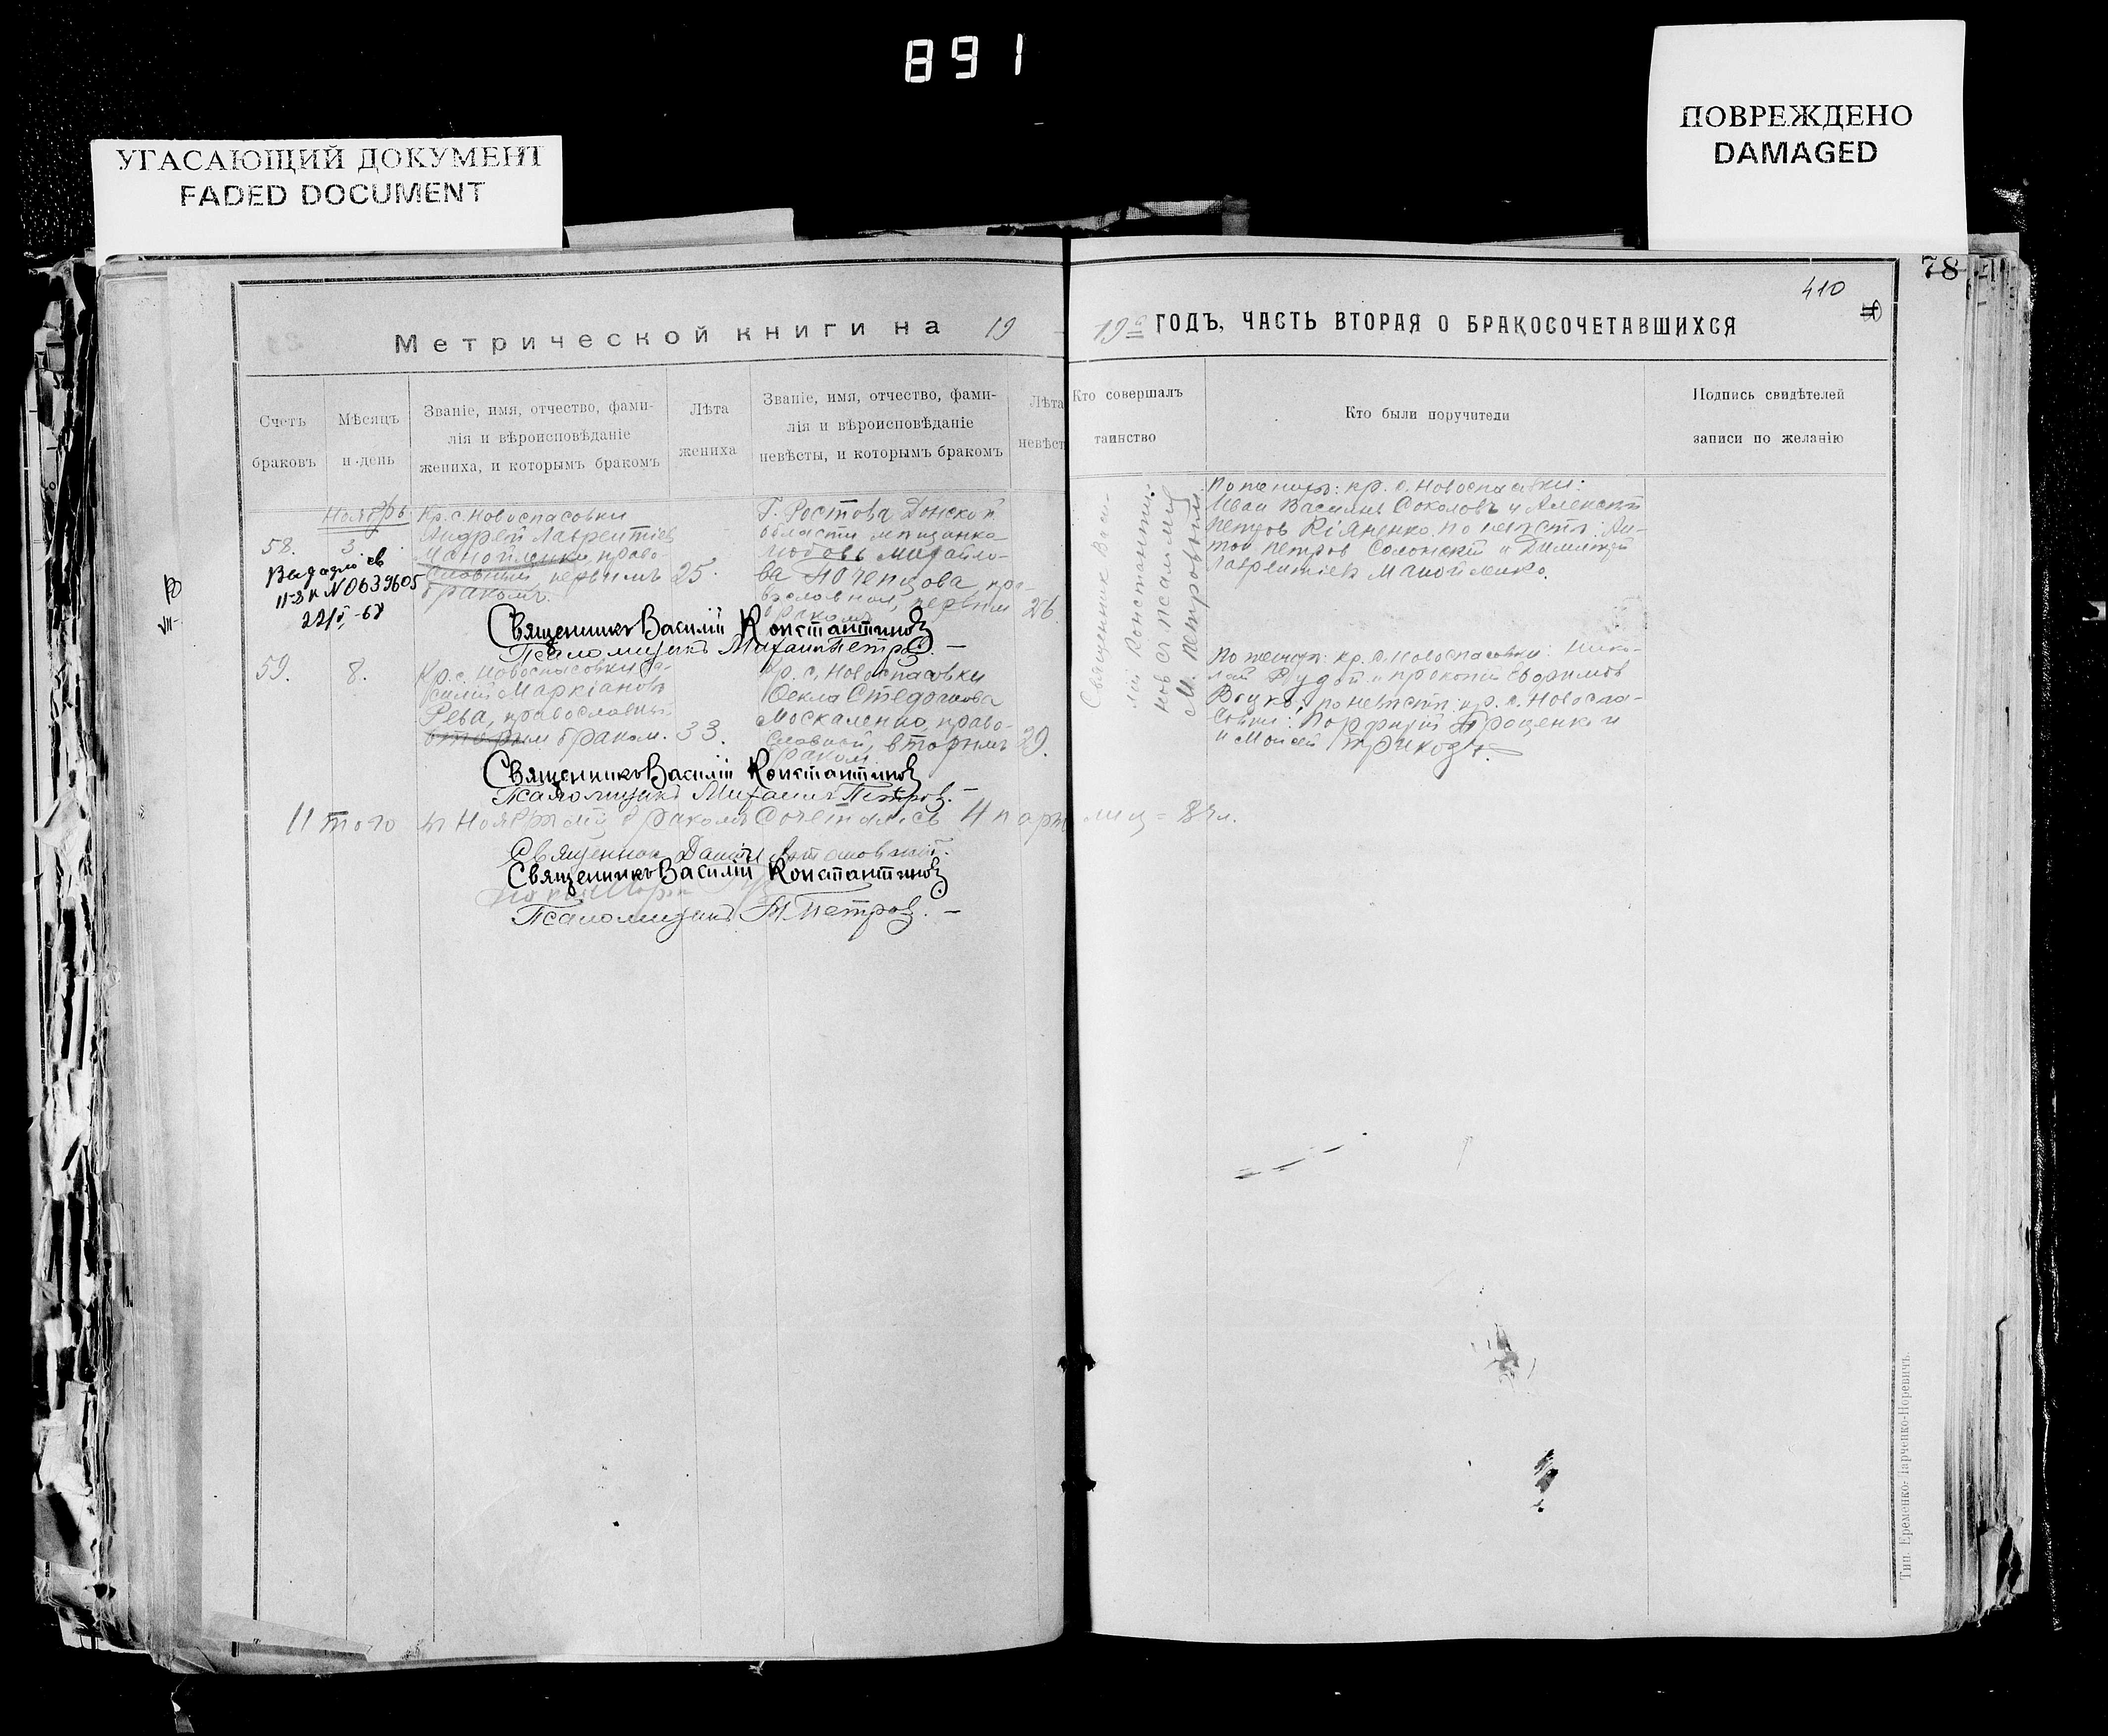 891
УГАСАЮЩИЙ ДОКУМЕНТ
FADED DOCUMENT
ПОВРЕЖДЕНО
DAMAGED
78
410
Метрической книги на 19
19 ГОДЪ, ЧАСТЬ ВТОРАЯ О БРАКОСОЧЕТАВШИХСЯ
Счетъ
браковъ
Мѣсяцъ
и день
Званіе, имя, отчество, фами-
лія и вѣроисповѣданіе
жениха, и которымъ бракомъ
Лѣта
жениха
Званіе, имя, отчество, фами-
лія и вѣроисповѣданіе
невѣсты, и которымъ бракомъ
Лѣта
невѣст
Кто совершалъ
таинство
Кто были поручители
Подпись свидѣтелей
записи по желанію
58.
Ноябрь
3.
Выдано св
II-ЭК N0639605
Кр. с. Новоспасовки
Андрей Лаврентіев
Манойленко, право-
славный, первымъ
бракомъ.
25.
Г. Ростова Донской
области мѣщанка
Любовь Михайло-
ва Поченцова, пра-
вославная, первым
бракомъ
26.
Священникъ Васи-
лій Константи-
нов съ псаломщ
М. Петровым
По женихѣ: кр. с. Новоспасовки:
Иван Васильев Соколовъ и Алексѣй
Петров Кіяненко. по невѣстѣ: Ан-
тон Петров Солонскій и Димитрій
Лаврентіевъ Манойленко.
Священникъ Василій Константиновъ
Псаломщикъ Михаилъ Петров. —
59.
8.
Кр. с. Новоспасовки Ва-
силій Маркіановъ
Рева, православный
вторым браком.
33.
Кр. с. Новоспасовки
Ѳекла Стефанова
Москаленко, право-
славной, вторымъ
браком.
29.
По женихѣ: кр. с. Новоспасовки: Нико-
лай Рудой и Прокопій Ефримов
Воцко; по невѣстѣ: кр. с. Новоспа-
совки: Порфирій Проценко и
и Моисей Приходь.
Священникъ Василій Константиновъ
Псаломщикъ Михаилъ Петров. —
Итого въ Ноябрѣ бракомъ Сочетались 4 пары лиц = 8 ч.
Священник
Священникъ Василій Константиновъ
Псаломщикъ М Петров. —
Тип. Еременко-Марченко-Норевичъ.